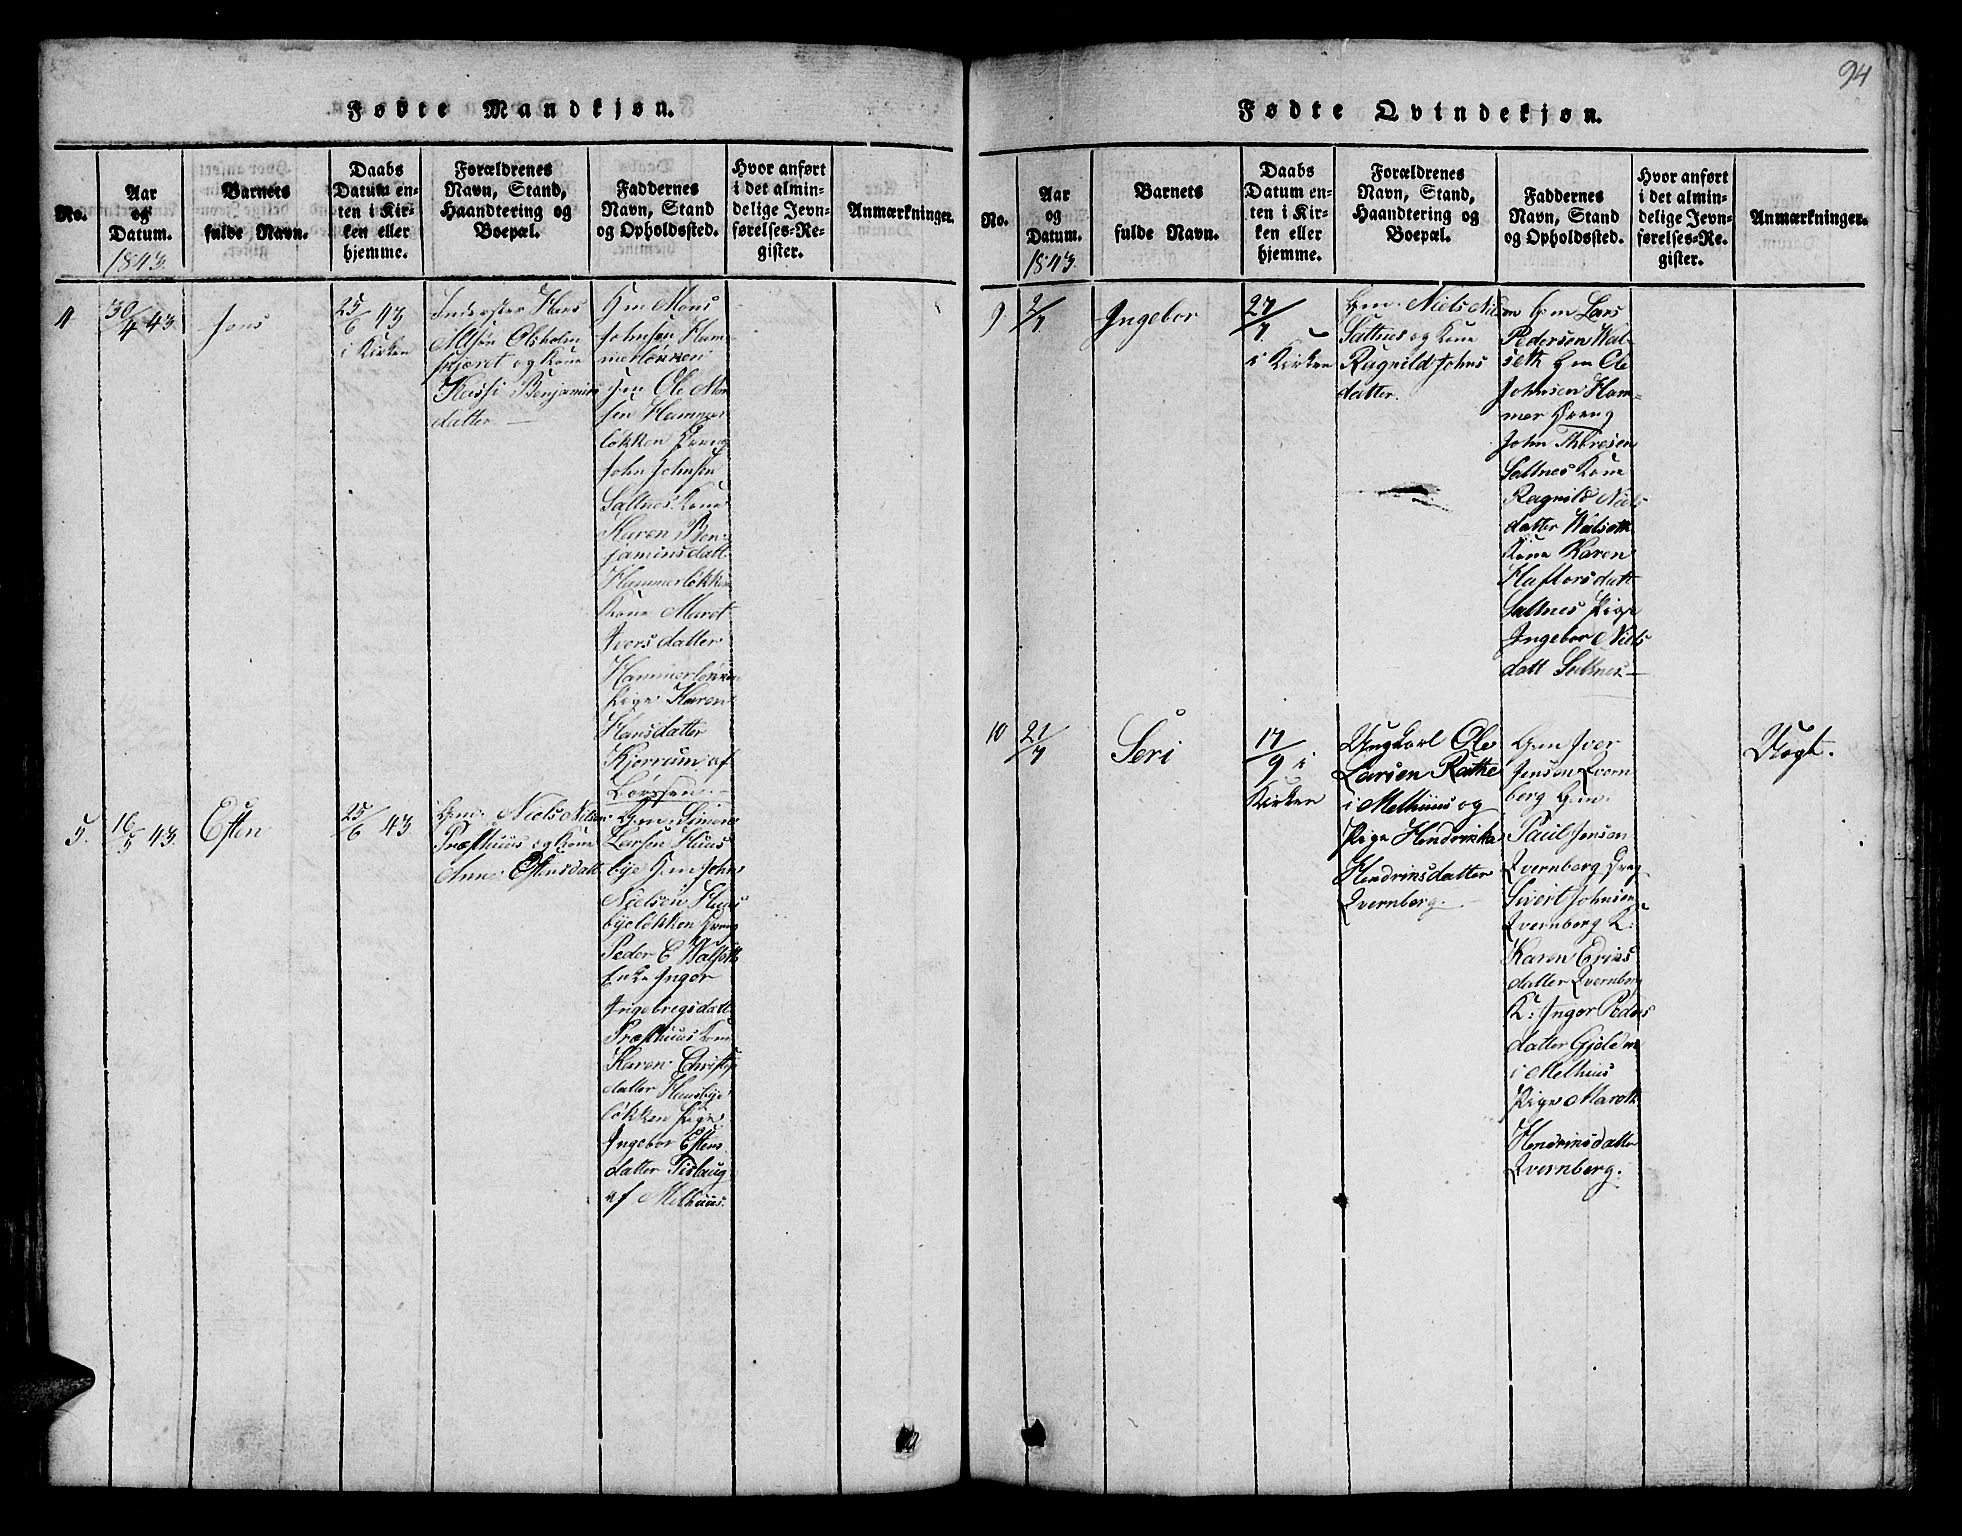 94
Fødte Mandkjøn.
No.
Aar
og
Datum.
1843.
Barnets
fulde Navn.
Daabs
Datum en-
ten i Kir-
ken eller
hjemme.
Forældrenes
Navn, Stand,
Haandtering og
Boepæl.
Faddernes
Navn, Stand
og Opholdssted.
Hvor anført
i det almin-
delige Jevn-
førelses-Re-
gister.
Anmærkninger.
4
30/4 43.
Jens
25/6 43
i Kirken
Inderster Hans
Olsholm
og Kone
Benjamins
datter
Gm Mons
Johnsen Ham-
merløkken
Gm Ole Mon
sen Hammer
løkken Dreng
John Johnsen
Saltnes Kone
Karen Ben-
jaminsdatt
Hammerløkken
Kone Maret
Ivers datter
Hammerløkken
Pige Karen
Hansdatter
Kjerrum af
Børssen.
5.
16/5 43.
Esten
25/6 43
Gm: Niels Nilsen
Præsthuus og Kone
Anne Estensdatt
Gm: Simen
Larsen Huus
bye Gm John
Nielsen Huus
byeløkken Dreng
Peder E Walseth
Enke Inger
Ingebregsdatt
Præsthuus Kone
Karen Christop
datter Huusbye
løkken Pige
Ingebor Estens
datter Tislaug
af Melhuus.
Fødte Qvindekjøn.
No.
Aar
og
Datum.
1843.
Barnets
fulde Navn.
Daabs
Datum en-
ten i Kir-
ken eller
hjemme.
Forældrenes
Navn, Stand,
Haandtering og
Boepæl.
Faddernes
Navn, Stand
og Opholdssted.
Hvor anført
i det almin-
delige Jevn-
førelses-Re-
gister.
Anmærkninger.
9
2/7
Ingebor
27/7.
i Kirken
Gm. Niels Nilsen
Saltnes og Kone
Ragnild Johns
datter.
Gm Lars
Pedersen Wal-
seth Gm Ole
Johnsen Ham-
mer Dreng
John Thoresen
Saltnes Kone
Ragnild Niels
datter Walseth
Kone Karen
Haftorsdatt
Saltnes Pige
Ingebor Niels
datt Saltnes
10
21/7
Seri
17/9 i
Kirken
Ungkarl Ole
Larsen Rathe
i Melhuus og
Pige Hendrikka
Hendriksdatter
Qvernberg.
Gm Iver
Jensen Qvern
berg Gm.
Paul Jensen
Qvernberg Dreng
Sivert Johnsen
Qvernberg K:
Karen Eriks
datter Qvernberg
K: Inger Peders
datter Gjølme
i Melhuus
Pige Mareth
Hendriksdatter
Qvernberg.
Uægt.